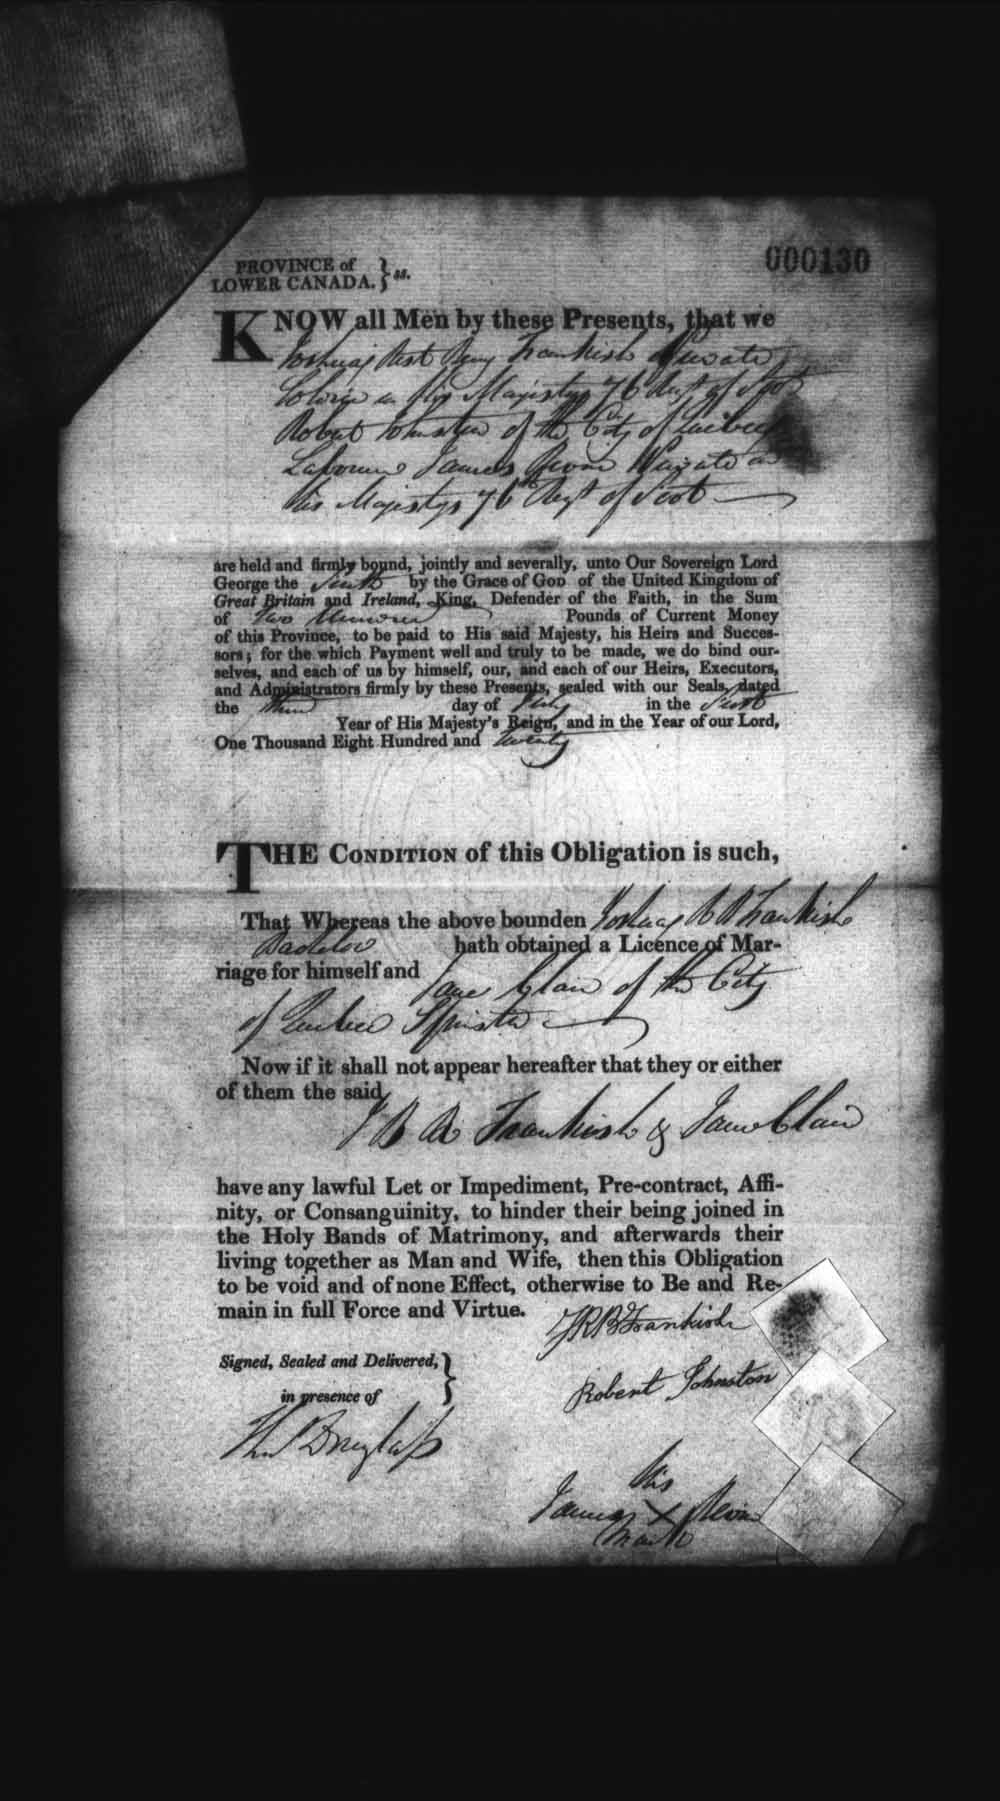 000130
PROVINCE of
LOWER CANADA. } ss.
KNOW all Men by these Presents, that we
Frankish Private
in His Majestys 76 Regt of Foot
Robert Johnston of the City of Quebec
Labourer James Private in
his Majestys 76th Regt of Foot
are held and firmly bound, jointly and severally, unto Our Sovereign Lord
George the Fourth by the Grace of GOD of the United Kingdom of
Great Britain and Ireland, King, Defender of the Faith, in the Sum
of Two Hundred Pounds of Current Money
of this Province, to be paid to His said Majesty, his Heirs and Succes-
sors; for the which Payment well and truly to be made, we do bind our-
selves, and each of us by himself, our, and each of our Heirs, Executors,
and Administrators firmly by these Presents, sealed with our Seals, dated
the third day of July in the First
Year of His Majesty's Reign, and in the Year of our Lord,
One Thousand Eight Hundred and twenty
THE CONDITION of this Obligation is such,
That Whereas the above bounden R B Frankish
hath obtained a Licence of Mar-
riage for himself and Jane Clair of the City
of Quebec Spinster
Now if it shall not appear hereafter that they or either
of them the said
J B R Frankish & Jane Clair
have any lawful Let or Impediment, Pre-contract, Affi-
nity, or Consanguinity, to hinder their being joined in
the Holy Bands of Matrimony, and afterwards their
living together as Man and Wife, then this Obligation
to be void and of none Effect, otherwise to Be and Re-
main in full Force and Virtue.
JRBFrankish
Signed, Sealed and Delivered, }
in presence of
Robert Johnston
Thos Douglass
his
James X
Mark